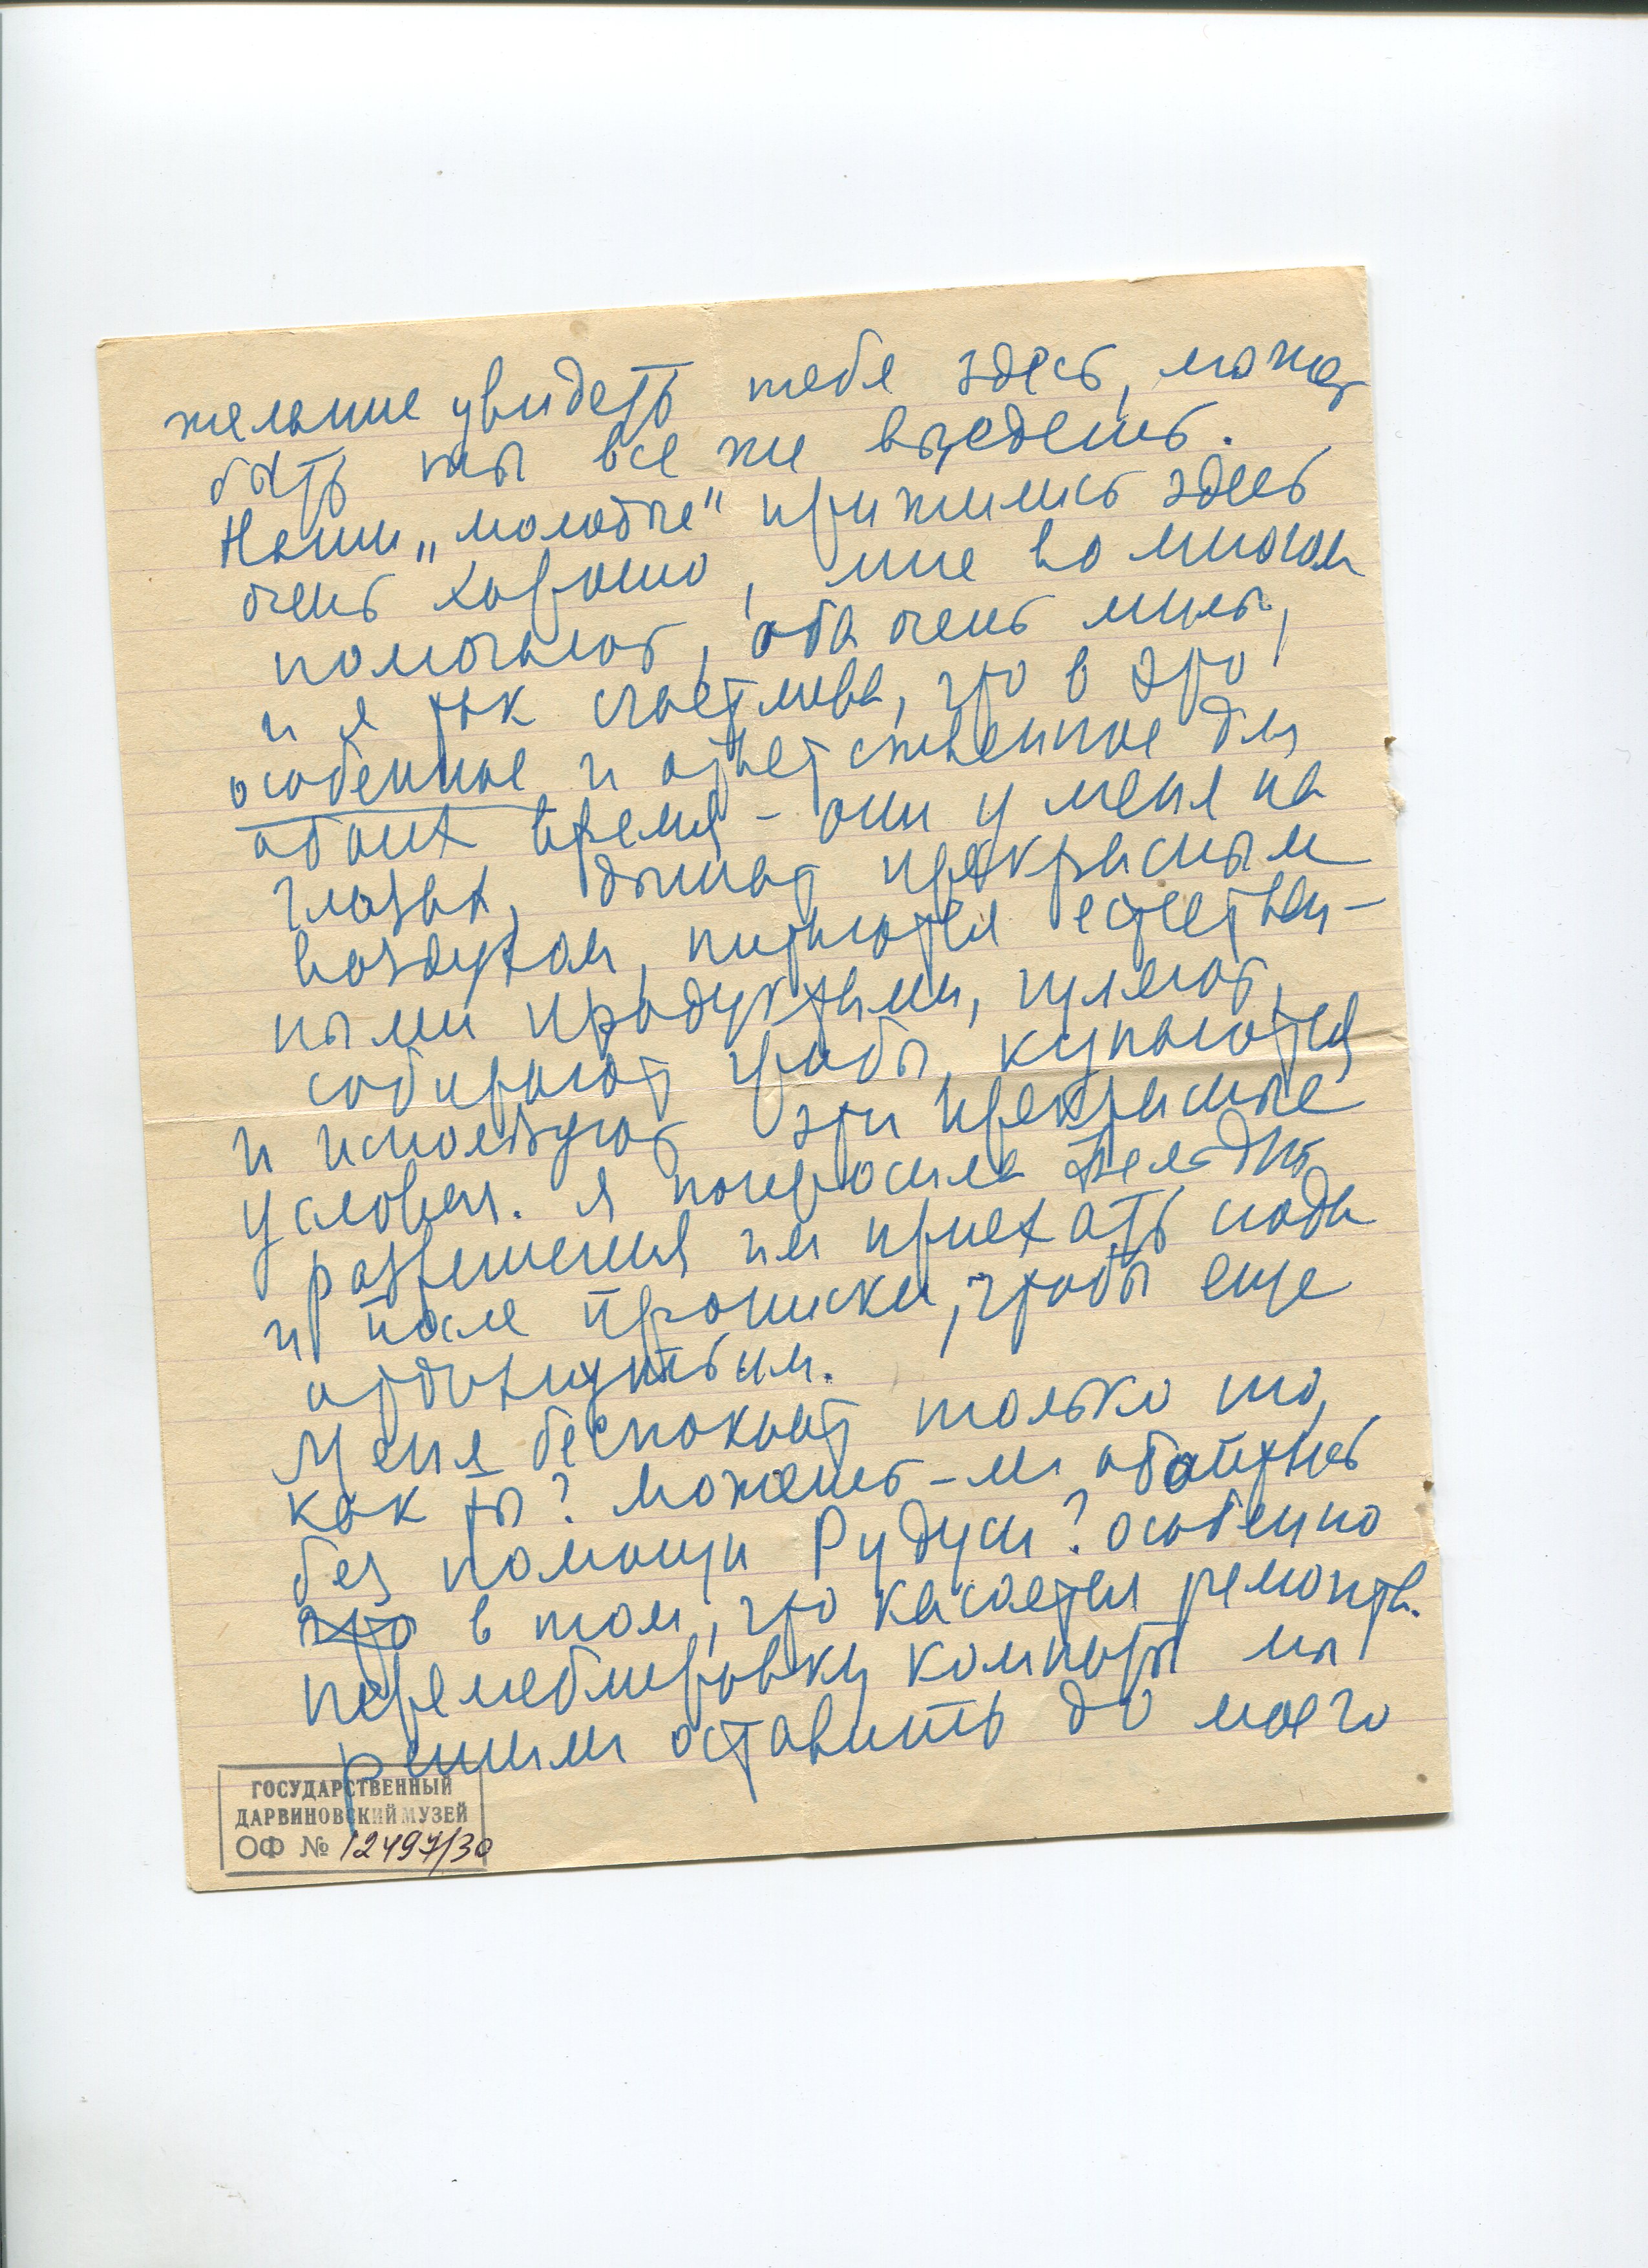 желание увидеть тебя здесь, может
быть ты все же выедешь.
Наши „молодые" прижились здесь
очень хорошо, мне во многом
помогают, оба очень милы,
и я так счастлива, что в это
особенное и ответственное для
обоих время - они у меня на
глазах, дышат прекрасным
воздухом, питаются естествен-
ными продуктами, гуляют,
собирают грибы, купаются
и используют эти прекрасные
условия. Я попросила
разрешения им приехать сюда
и после прописки, чтобы еще
отдохнуть им.
Меня беспокоит только то,
как ты? можешь-ли обойтись
без помощи Рудуси? особенно
это в том, что касается ремонта.
перемеблировку комнаты мы
решили оставить до моего
ГОСУДАРСТВЕННЫЙ
ДАРВИНОВСКИЙ МУЗЕЙ
ОФ № 12497/30